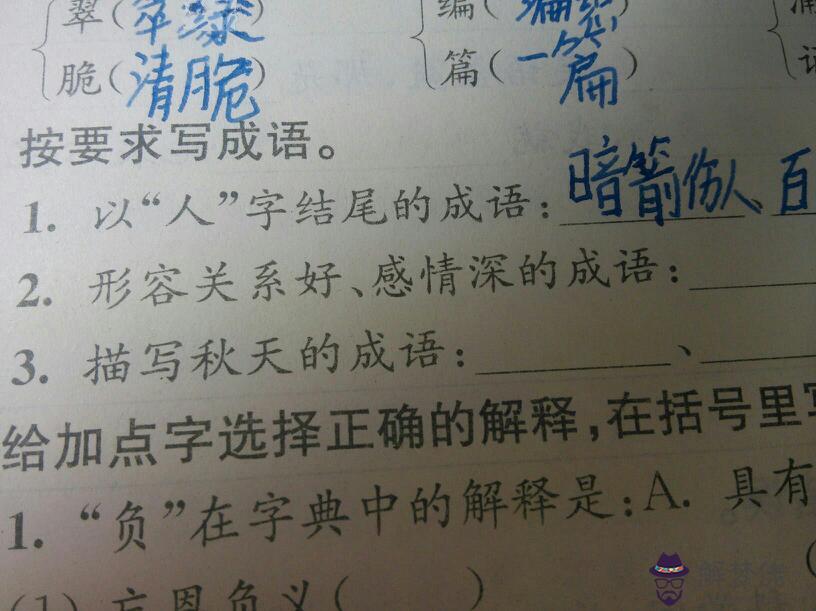 翠(翠绿) 编(编
脆(清脆) 篇(一篇)
按要求写成语。
1. 以“人”字结尾的成语:暗箭伤人、百
2. 形容关系好、感情深的成语:
3. 描写秋天的成语: 、
给加点字选择正确的解释,在括号里写
1. “负”在字典中的解释是:A. 具有
(1) 忘恩负义( ) (
解梦佬